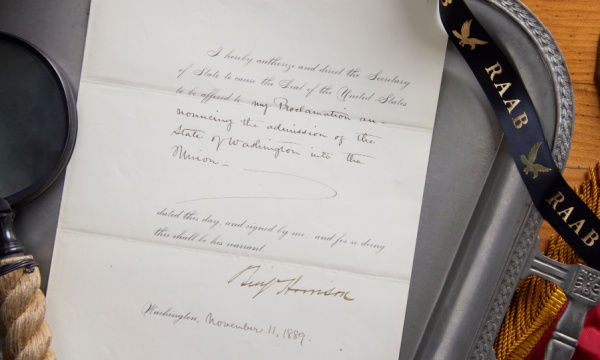 I hereby authorize and direct the Secretary
of State to cause the Seal of the United States
to be affixed to my Proclamation an-
nouncing the admission of the
State of Washington into the
Union.
dated this day, and signed by me and for so doing
this shall be his warrant.
Benj Harrison
Washington, November 11, 1889.
RAAB
RAAB